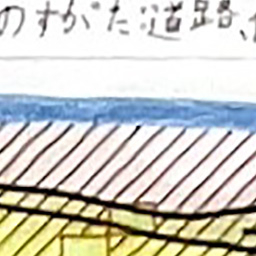 のすがた道路、